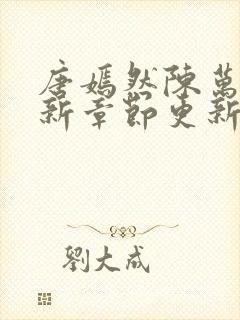 唐嫣然陳萬
新章節更新
劉大成